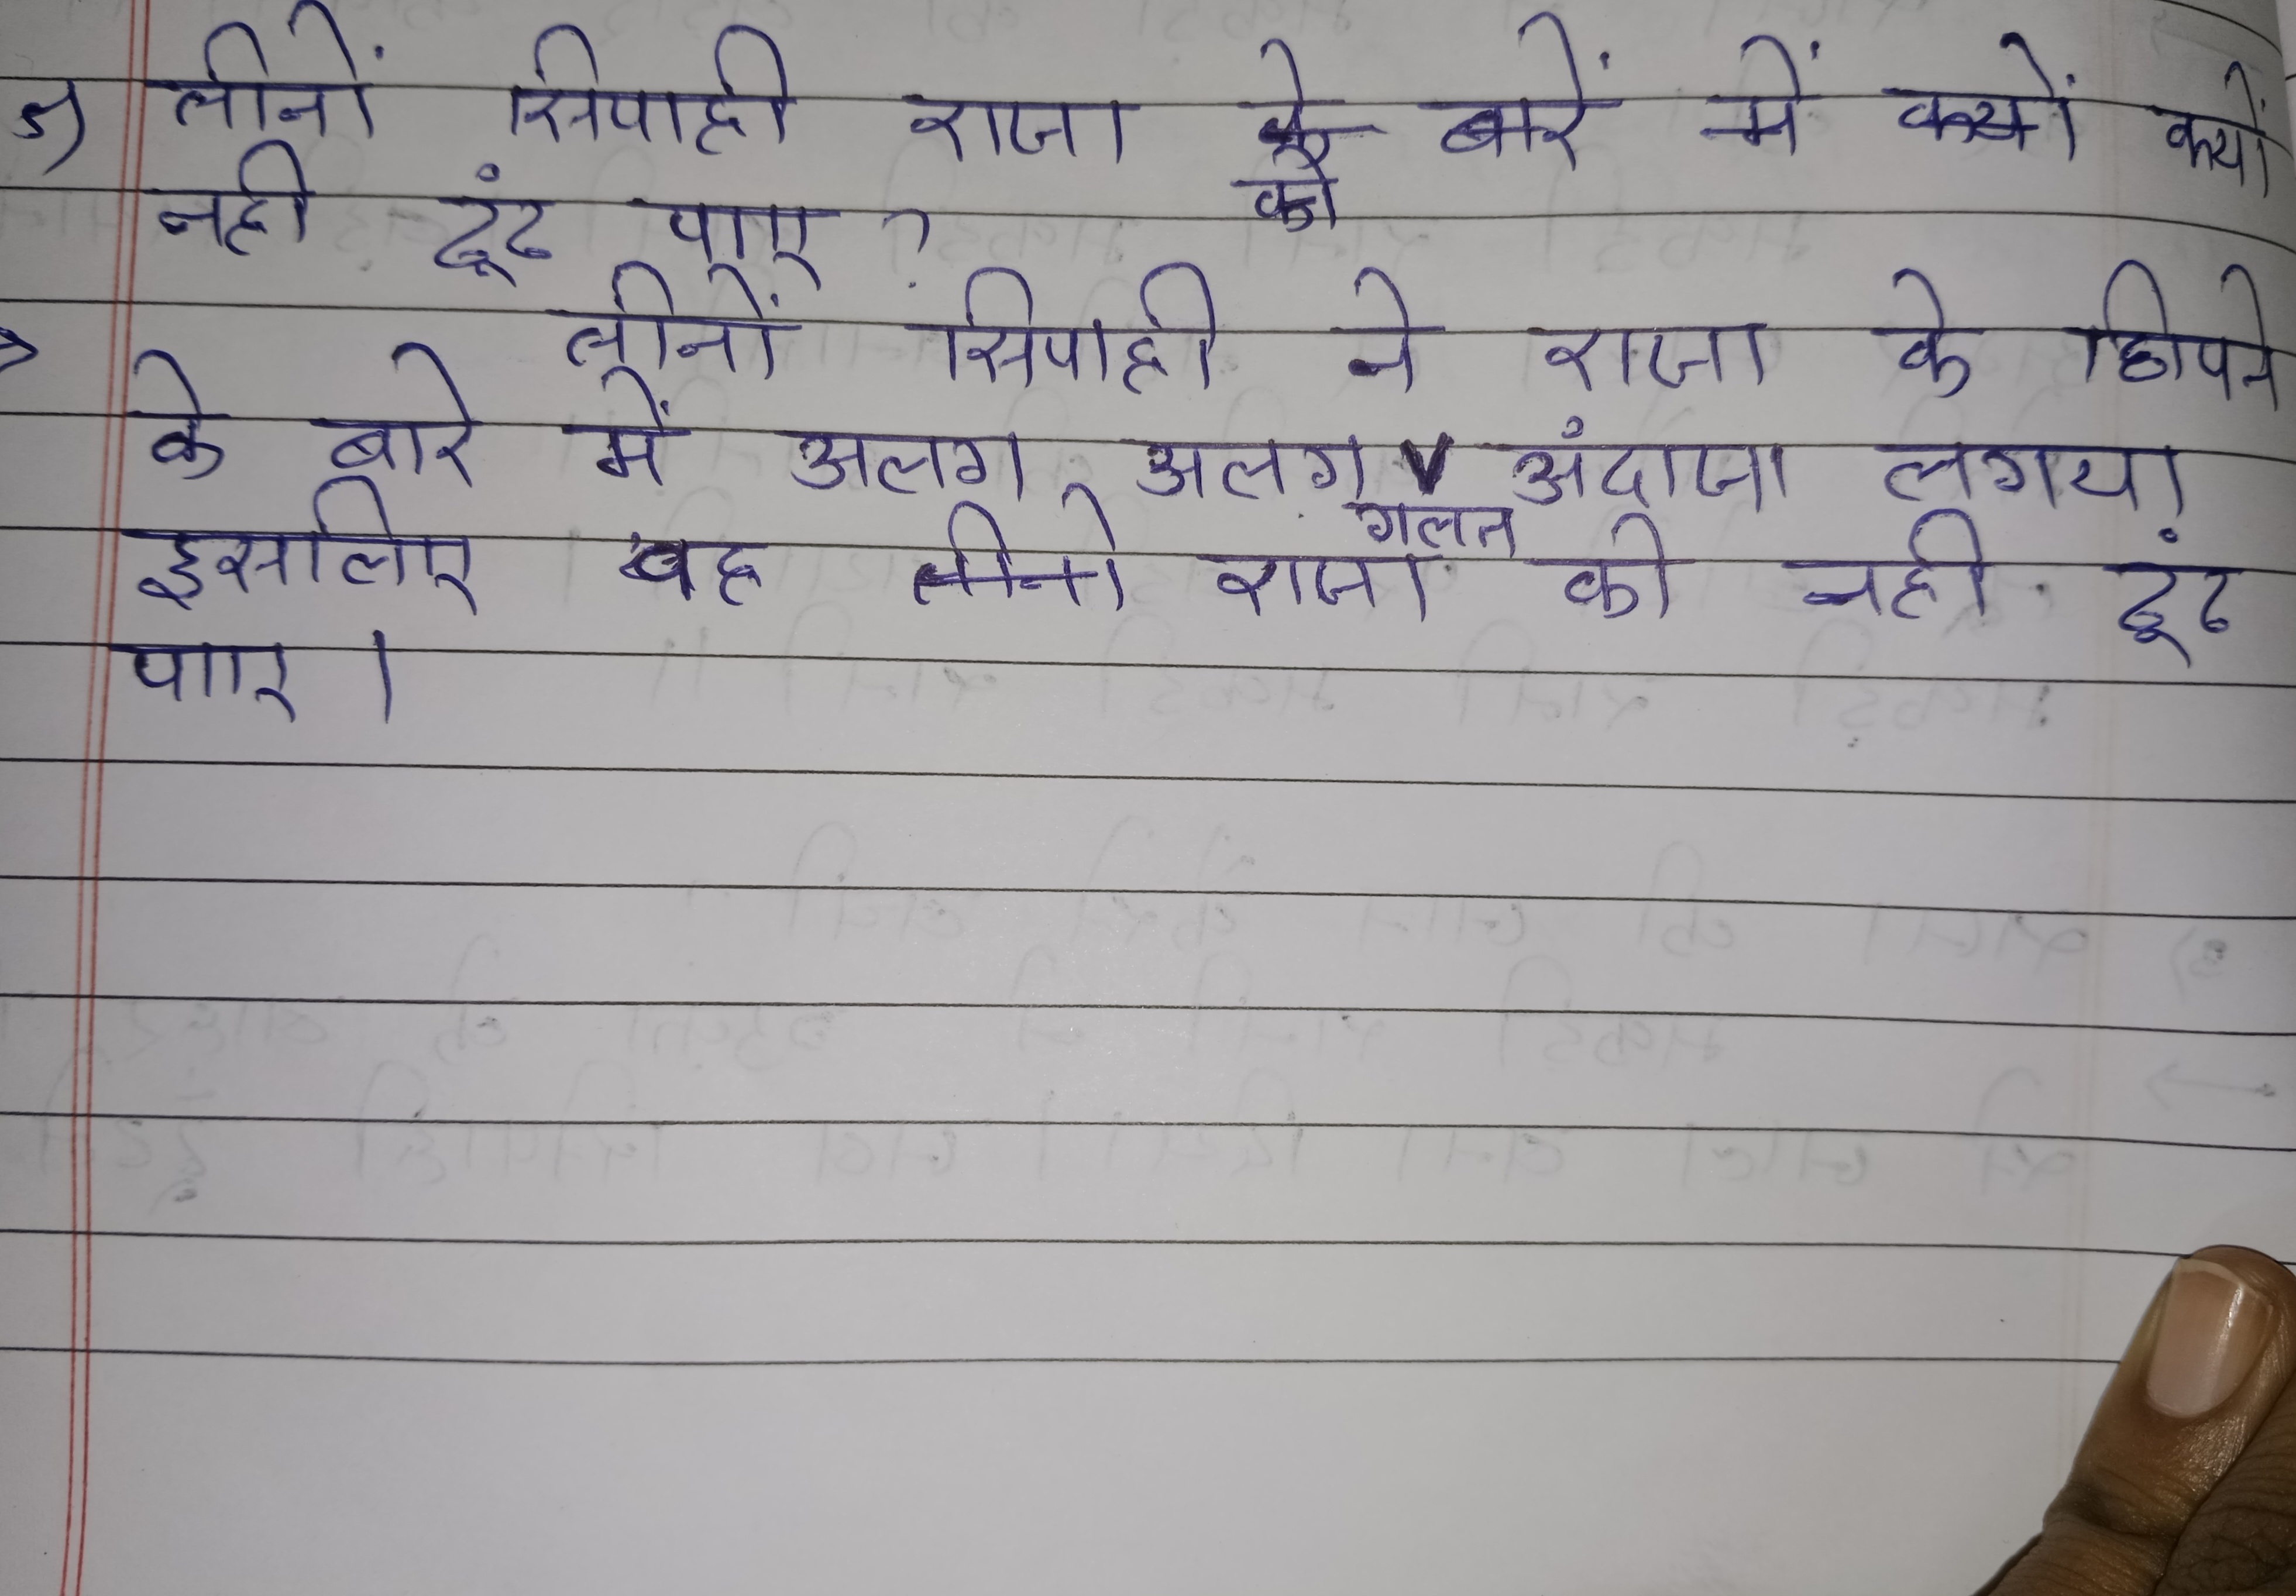 5) तीनों सिपाही राजा के बारें में क्यों क्यों
को
नही ढूंढ पाए ?
→ तीनों सिपाही ने राजा के छिपने
के बारे में अलग अलग गलत अंदाजा लगया।
इसलिए वह तीनो राजा को नही ढूंढ
पाए ।